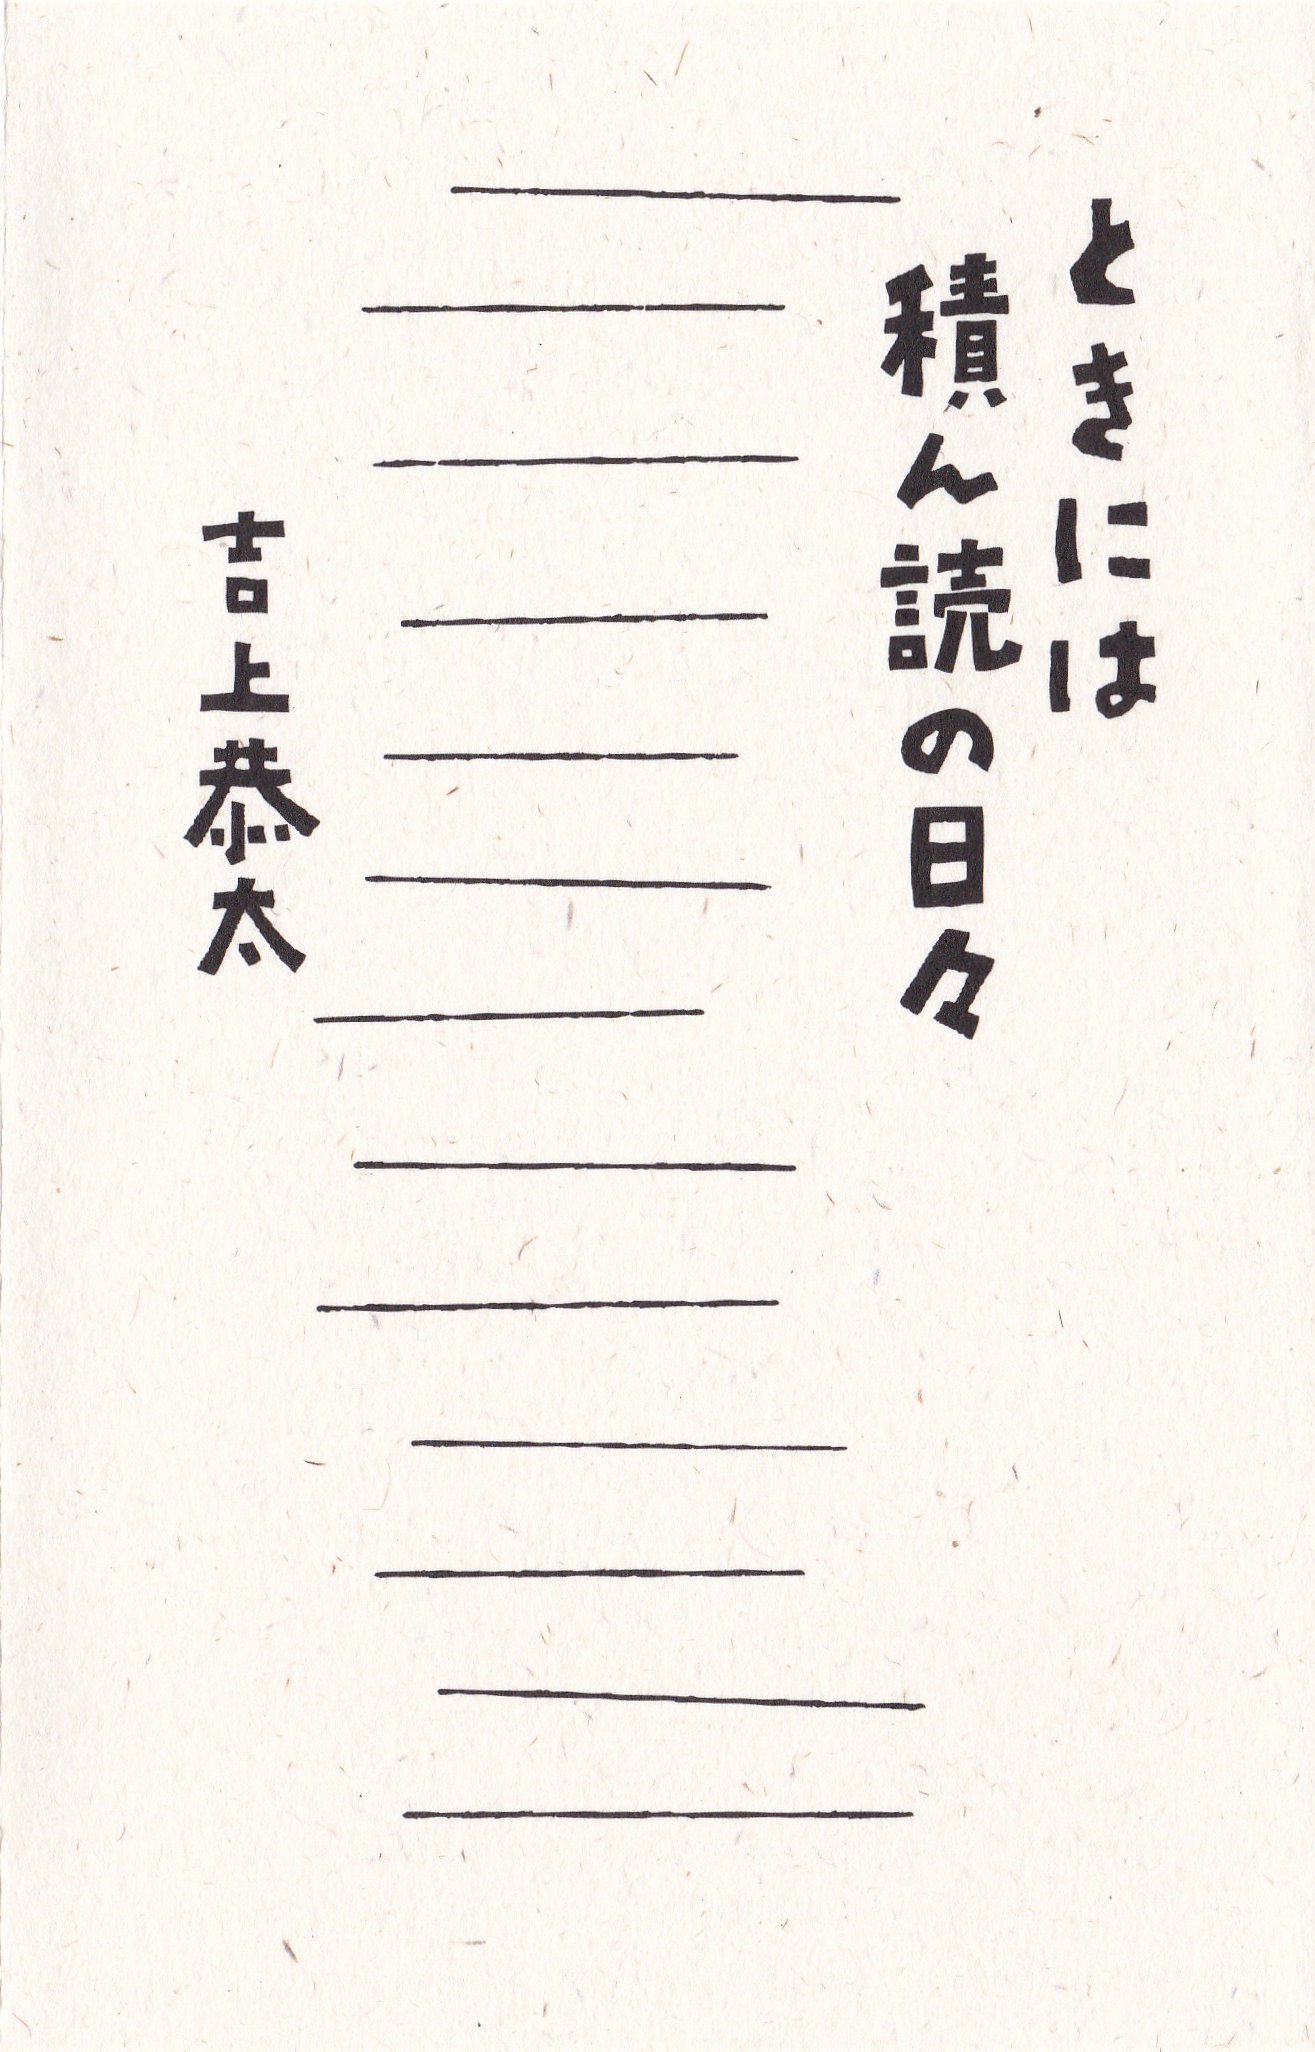 ときには
積ん読の日々
吉上恭太